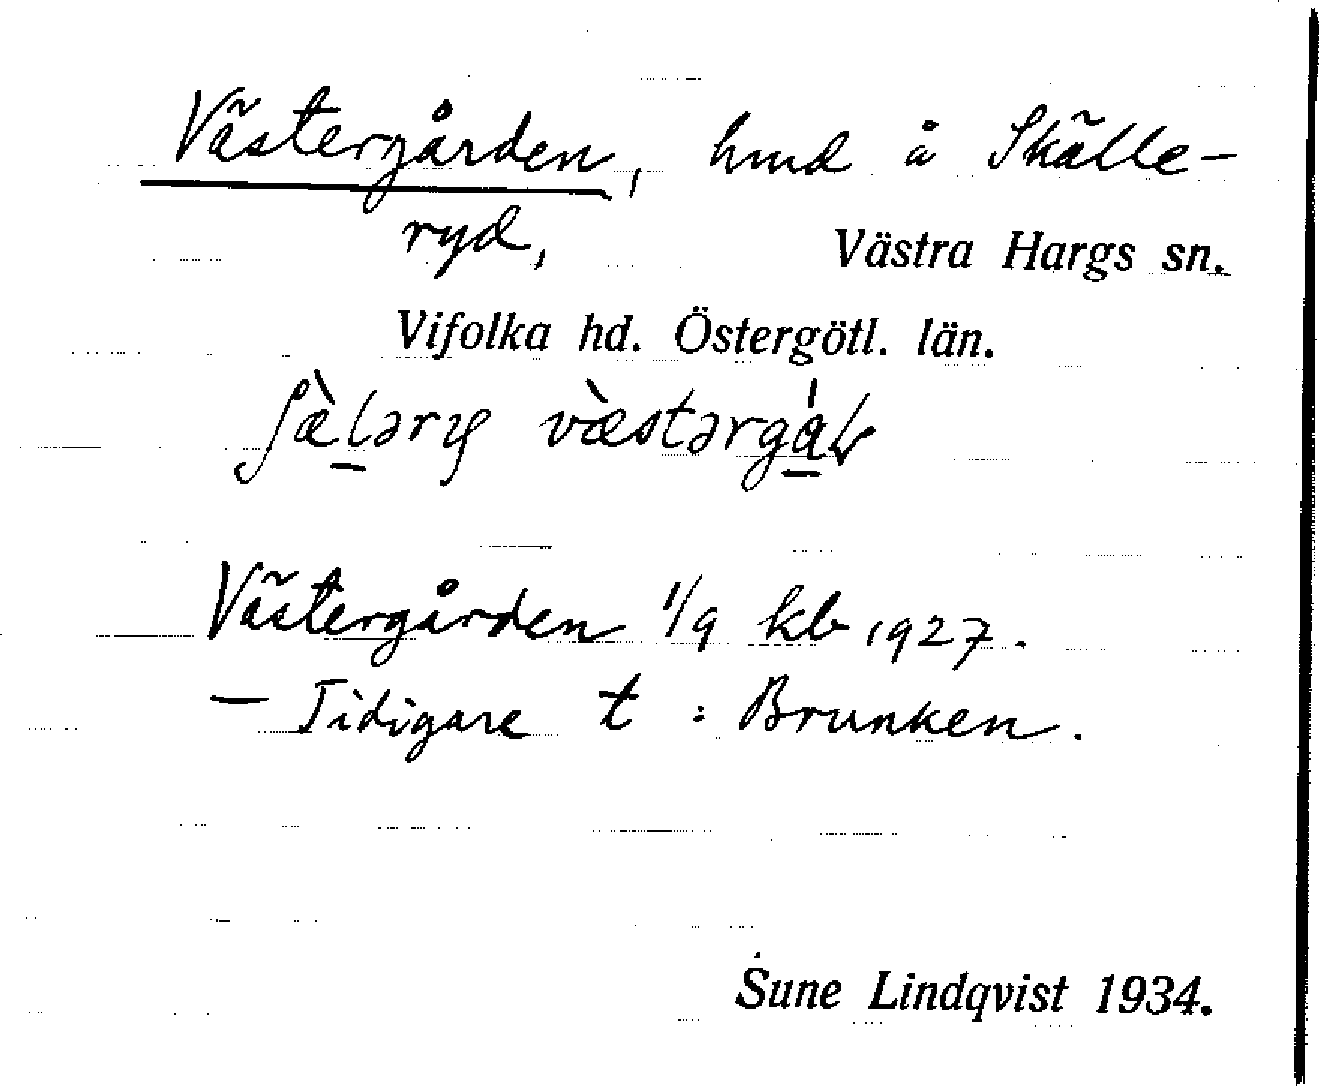 Västergården, hmd å Skälle-
ryd, Västra Hargs sn.
Vifolka hd. Östergötl. län.
Västergården 1/9 kb 1927.
— Tidigare t : Brunken.
Sune Lindqvist 1934.